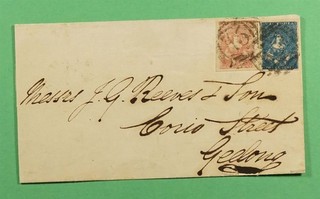 Messrs J. G. Reeves & Son
Corio Street
Geelong